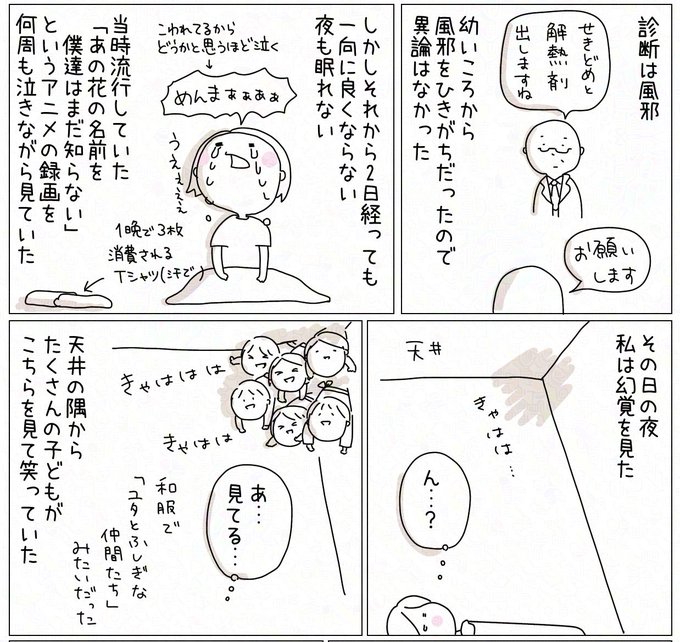 診断は風邪
せきどめと
解熱剤
出しますね
幼いころから
風邪をひきがちだったので
異論はなかった
お願い
します
しかしそれから2日経っても
一向に良くならない
夜も眠れない
こわれてるから
どうかと思うほど泣く
めんまぁぁぁぁ
うぇぇぇぇ
1晩で3枚
消費される
Tシャツ(汗で)
当時流行していた
「あの花の名前を
僕達はまだ知らない」
というアニメの録画を
何周も泣きながら見ていた
その日の夜
私は幻覚を見た
天井
きゃはは…
ん…?
きゃははは
きゃはは
あ…
見てる…
和服で
「ユタとふしぎな
仲間たち」
みたいだった
天井の隅から
たくさんの子どもが
こちらを見て笑っていた